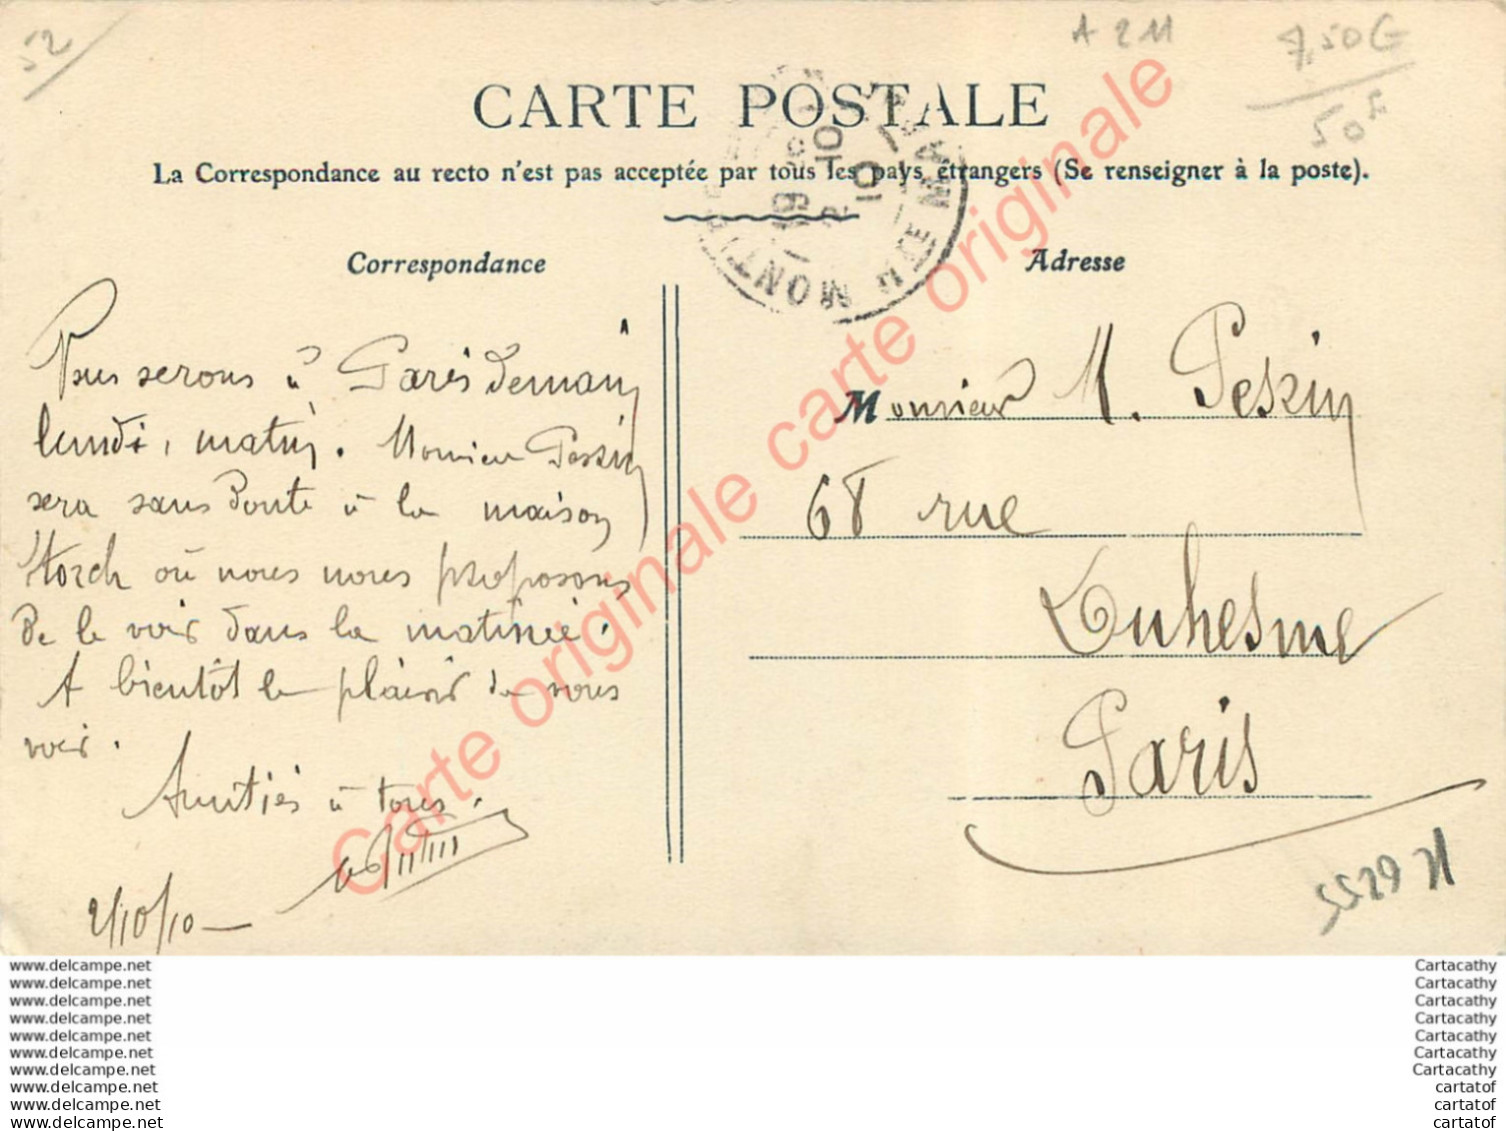 52
A 211
7,50 €
50F
CARTE POSTALE
La Correspondance au recto n'est pas acceptée par tous les pays étrangers (Se renseigner à la poste).
Correspondance
Adresse
serons à Paris demain
lundi, matin. Monsieur Peskin
sera sans doute à la maison
Storch où nous nous proposons
de le voir dans la matinée.
A bientôt le plaisir de vous
voir.
Amitiés à tous.
2/10/10
Monsieur M. Peskin
68 rue
Duhesme
Paris
5529
Carte originale carte originale carte originale
www.delcampe.net
www.delcampe.net
www.delcampe.net
www.delcampe.net
www.delcampe.net
www.delcampe.net
www.delcampe.net
www.delcampe.net
www.delcampe.net
www.delcampe.net
Cartacathy
Cartacathy
Cartacathy
Cartacathy
Cartacathy
Cartacathy
Cartacathy
cartatof
cartatof
cartatof